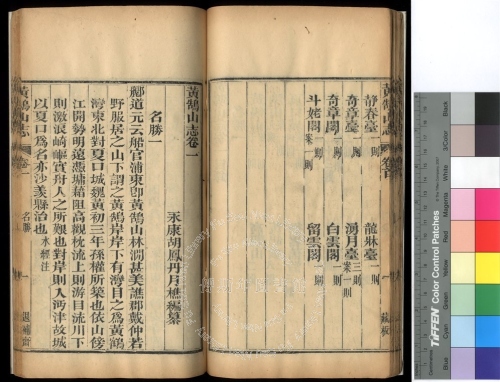 黃鵠山志 卷首
靜春臺 一則
龍牀臺 一則
奇章臺 一則
湧月臺 三則 案一則
奇章閣 一則
白雲閣 一則
斗姥閣 一則 案一則
留雲閣 一則
黃鵠山志卷一
永康胡鳳丹月樵編纂
名勝一
酈道元云船官浦東即黃鵠山林澗甚美譙郡戴仲若
野服居之山下謂之黃鵠岸岸下有灣目之為黃鵠
灣東北對夏口城魏黃初三年孫權所築也依山傍
江開勢明遠憑墉藉阻高觀枕流上則游目流川下
則激浪崎嶇實舟人之所艱也對岸則入沔津故城
以夏口爲名亦沙羨縣治也 水經注
黃鵠山志 卷一 名勝 一 退補齋
Inches
Centimetres
TIFFEN Color Control Patches
Blue
Cyan
Green
Yellow
Red
Magenta
White
3/Color
Black